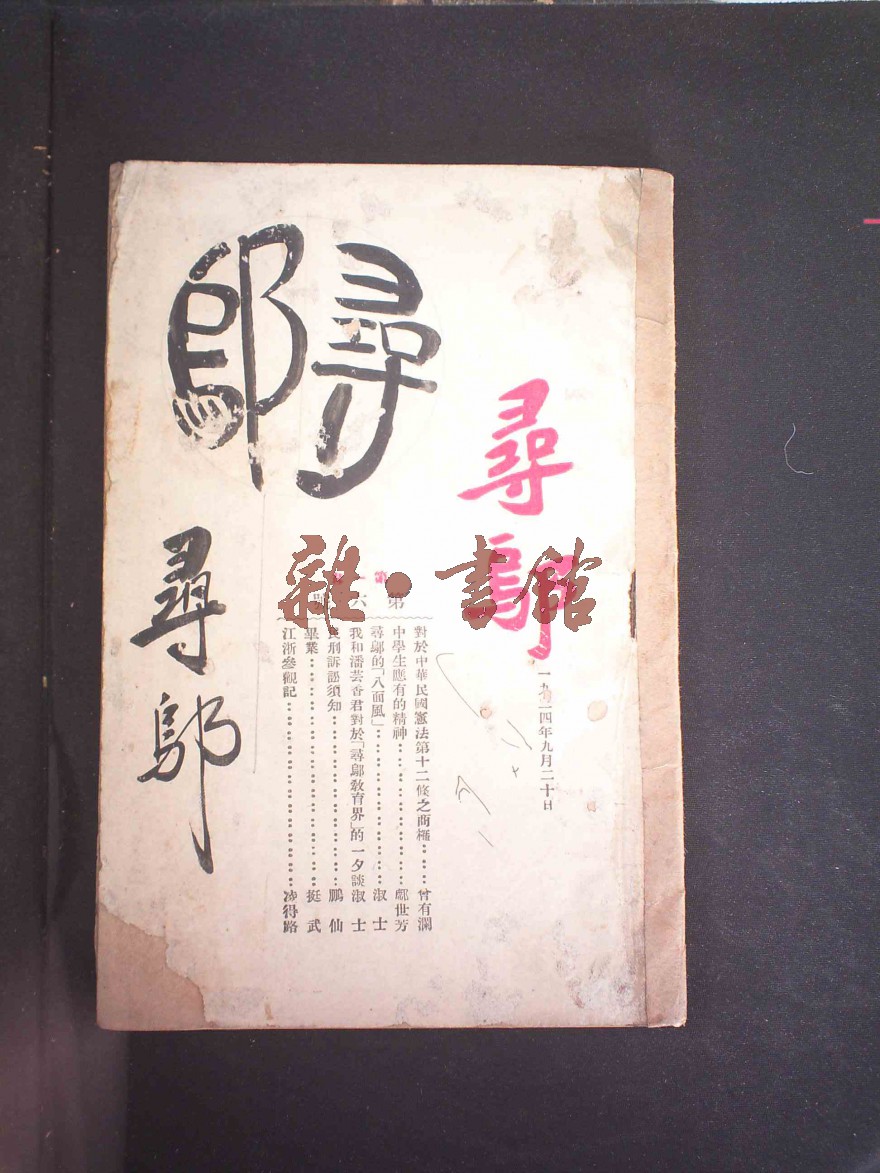 尋鄔
尋鄔
一九二四年九月二十日
第六號
對於中華民國憲法第十二條之商榷………曾有瀾
中學生應有的精神………鄺世芳
尋鄔的「八面風」………淑士
我和潘芸香君對於「尋鄔教育界」的一夕談 淑士
民刑訴訟須知………鵬仙
畢業………挺武
江浙參觀記………凌得路
尋鄔
雜·書館